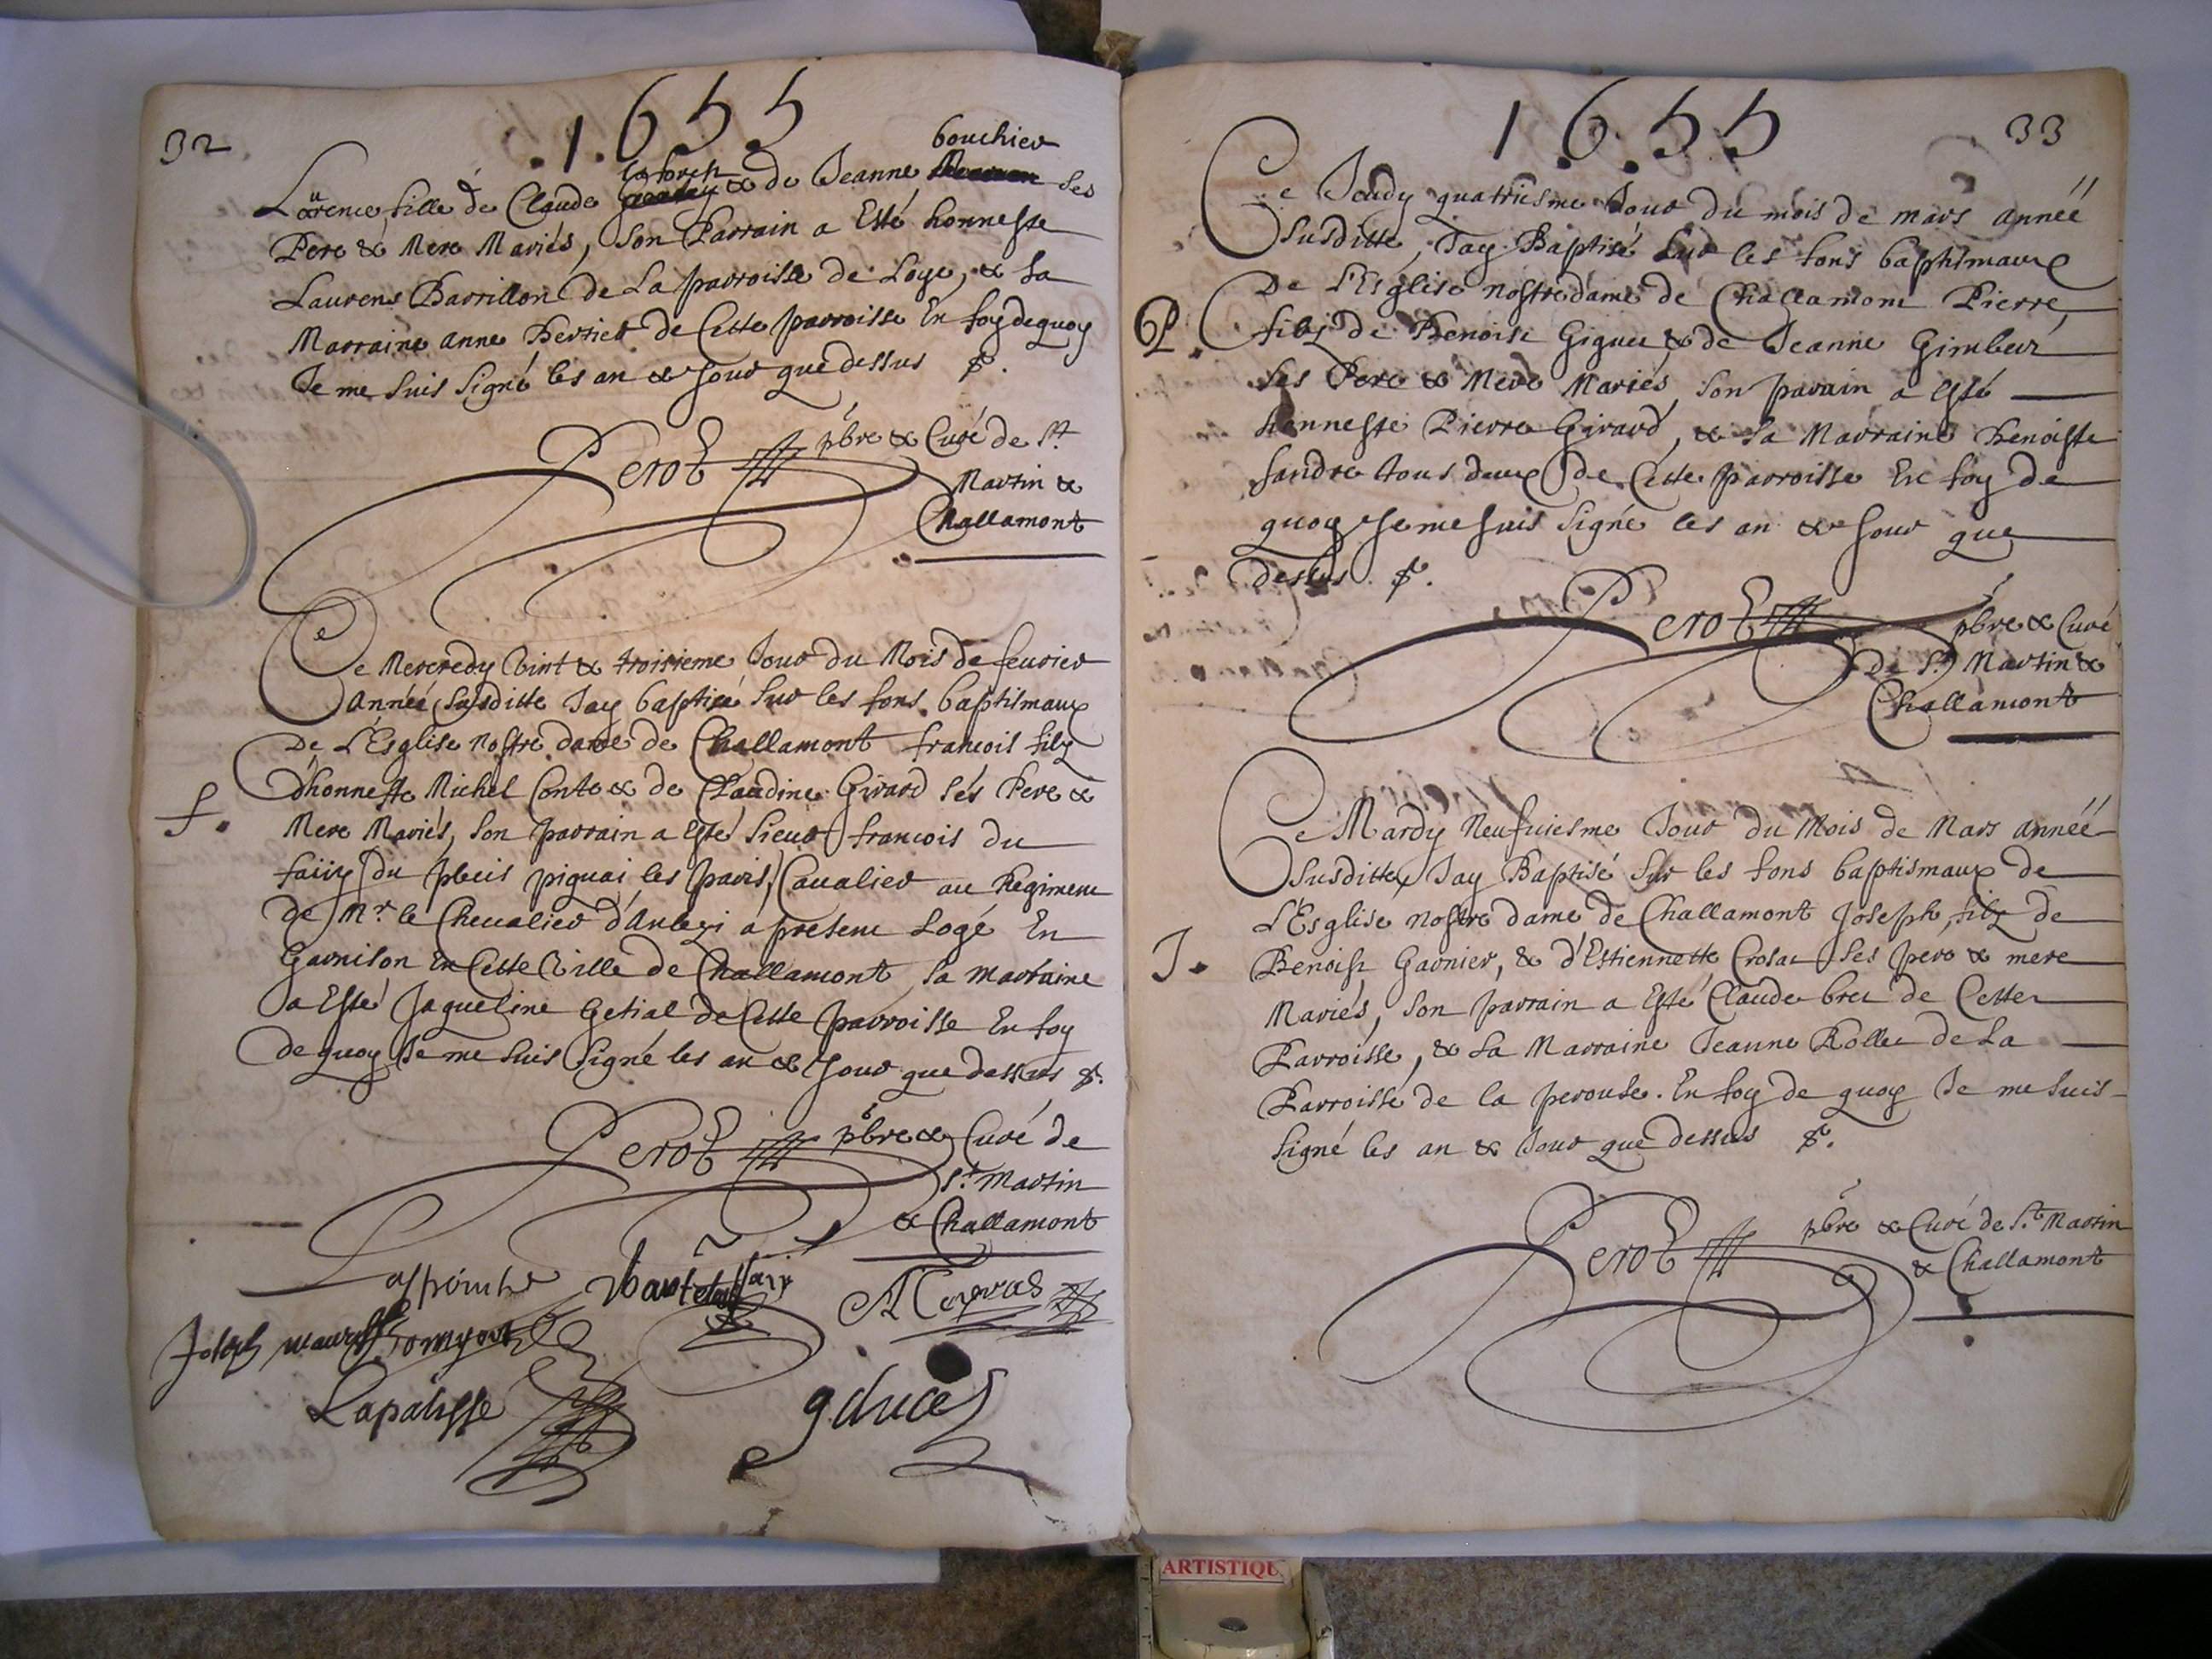 32
.1.655
bouchier
Laurence fille de Claude & de Jeanne ses
Pere & Mere Mariés, Son Parrain a Esté honneste
Laurens Barrillon de La parroisse de Loye, & sa
Marraine anne de Cette parroisse En foy de quoy
Je me suis signé les an & Jour que dessus
Perot pbre & Curé de St
Martin &
Challamont
Ce Mercredy Vint & troisieme Jour du Mois de feurier
Année Susditte Jay baptisé sur les fons baptismaux
De L'Esglise nostre dame de Challamont francois filz
d'honneste Michel Conte & de Claudine Girard ses Pere &
f.
Mere Mariés, Son parrain a Esté Sieur francois du
les paris, Caualier au Regiment
De Mr. le Cheualier a present Logé En
Garnison En Cette Ville de Challamont, sa marraine
a Esté Jaqueline Getial de Cette parroisse En foy
de quoy Je me suis signé les an & Jour que dessus
Perot pbre & Curé de
St. Martin
& Challamont
Joseph
Lapalisse
1.6.55
33
Ce Jeudy quatriesme Jour du mois de mars année
Susditte, Jay Baptisé sur les fons baptismaux
De L'Esglise nostre dame de Challamont Pierre,
P.
filz de Benoist Giguet & de Jeanne
Ses Pere & Mere Mariés, son parain a esté
honneste Pierre Girard, & sa Marraine Benoiste
fandre tous deux de Cette parroisse En foy de
quoy Je me suis signé les an & Jour que
dessus
Perot pbre & Curé
De St. Martin &
Challamont
Ce Mardy Neufuiesme Jour du Mois de Mars année
Susditte, Jay Baptisé sur les fons baptismaux de
L'Esglise nostre dame de Challamont Joseph, filz de
J.
Benoist Garnier, & d'Estiennette Crosat ses pere & mere
Mariés, son parrain a Esté Claude bret de Cette
Parroisse, & sa Marraine Jeanne Rollet de La
Parroisse de la perouse. En foy de quoy Je me suis
signé les an & Jour que dessus
Perot pbre & Curé de St. Martin
& Challamont
ARTISTIQU